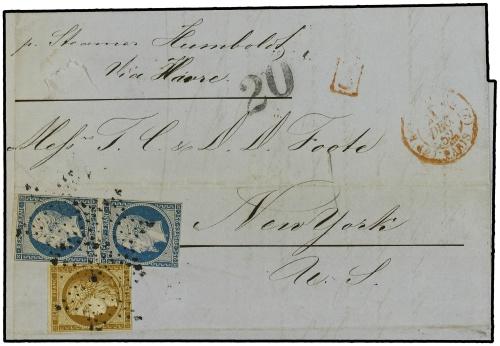 p. Steamer Humboldt,
Via Havre.
20
Mess.rs T. C. & D. D. Foote
New York
U. S.
DEC
PARIS